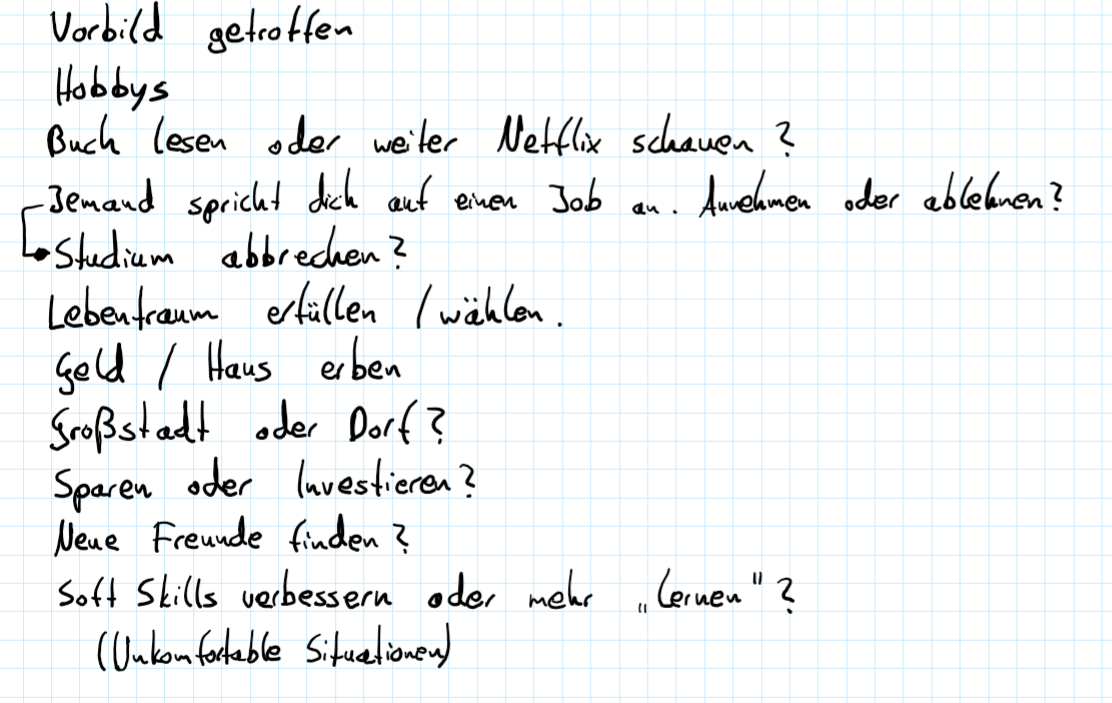 Vorbild getroffen
Hobbys
Buch lesen oder weiter Netflix schauen?
Jemand spricht dich auf einen Job an. Annehmen oder ablehnen?
Studium abbrechen?
Lebentraum erfüllen / wählen.
Geld / Haus erben
Großstadt oder Dorf?
Sparen oder Investieren?
Neue Freunde finden?
Soft Skills verbessern oder mehr „lernen"?
(Unkomfortable Situationen)